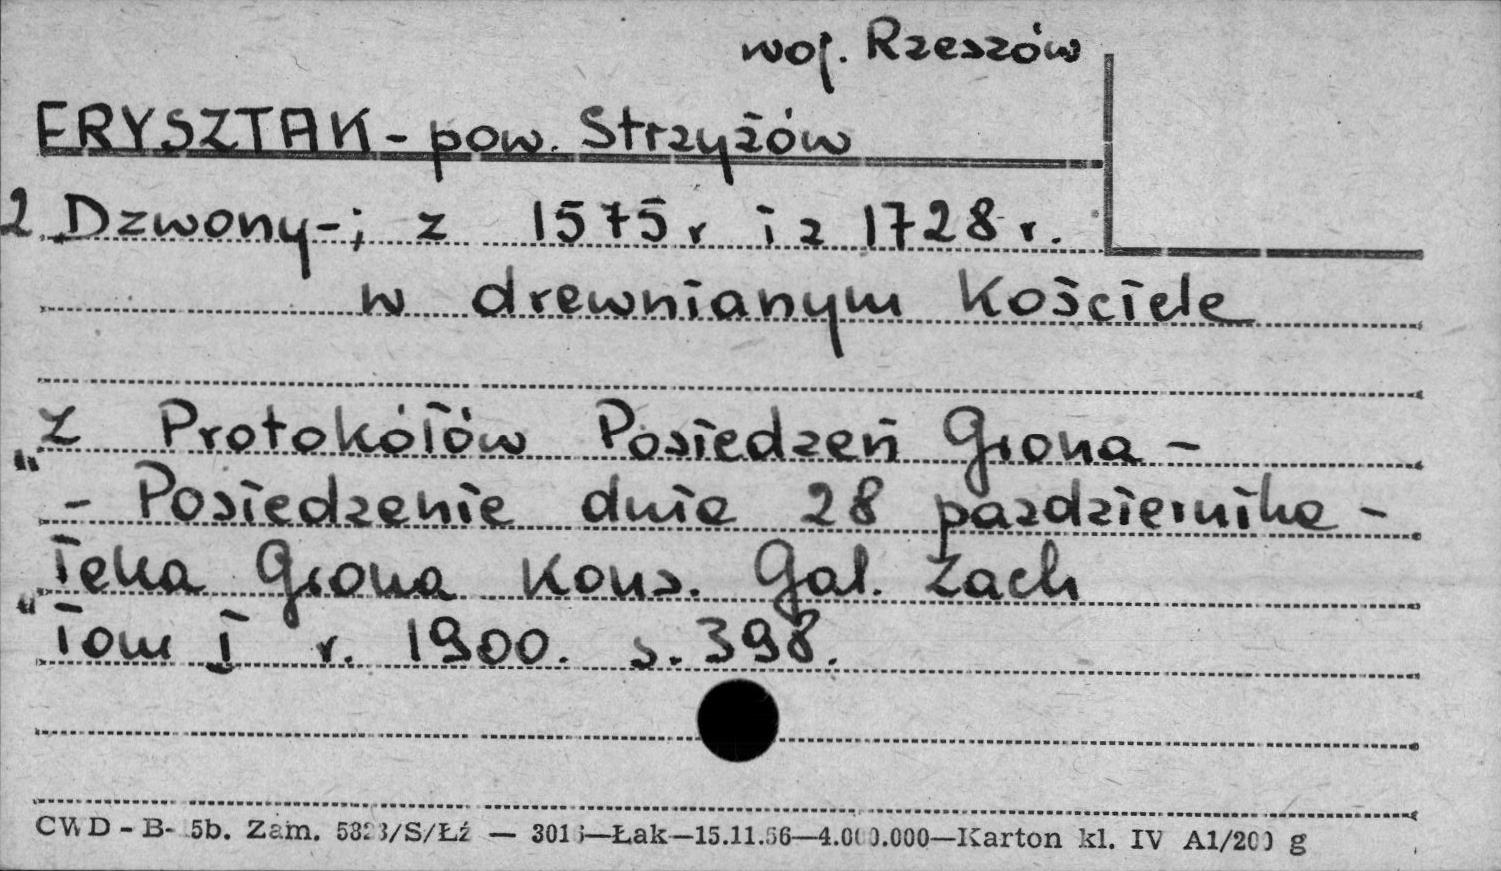 woj. Rzeszów
FRYSZTAK - pow. Strzyżów
2 Dzwony -; z 1575 r i z 1728 r.
w drewnianym Kościele
"Z Protokółów Posiedzeń Grona -
- Posiedzenie dnia 28 pazdziernika -
Teka Grona Kons. Gal. Zach
"Tom I r. 1900. s. 398.
CWD - B- 5b. Zam. /S/Łź — —Łak—15.11.56—4.000.000—Karton kl. IV A1/200 g